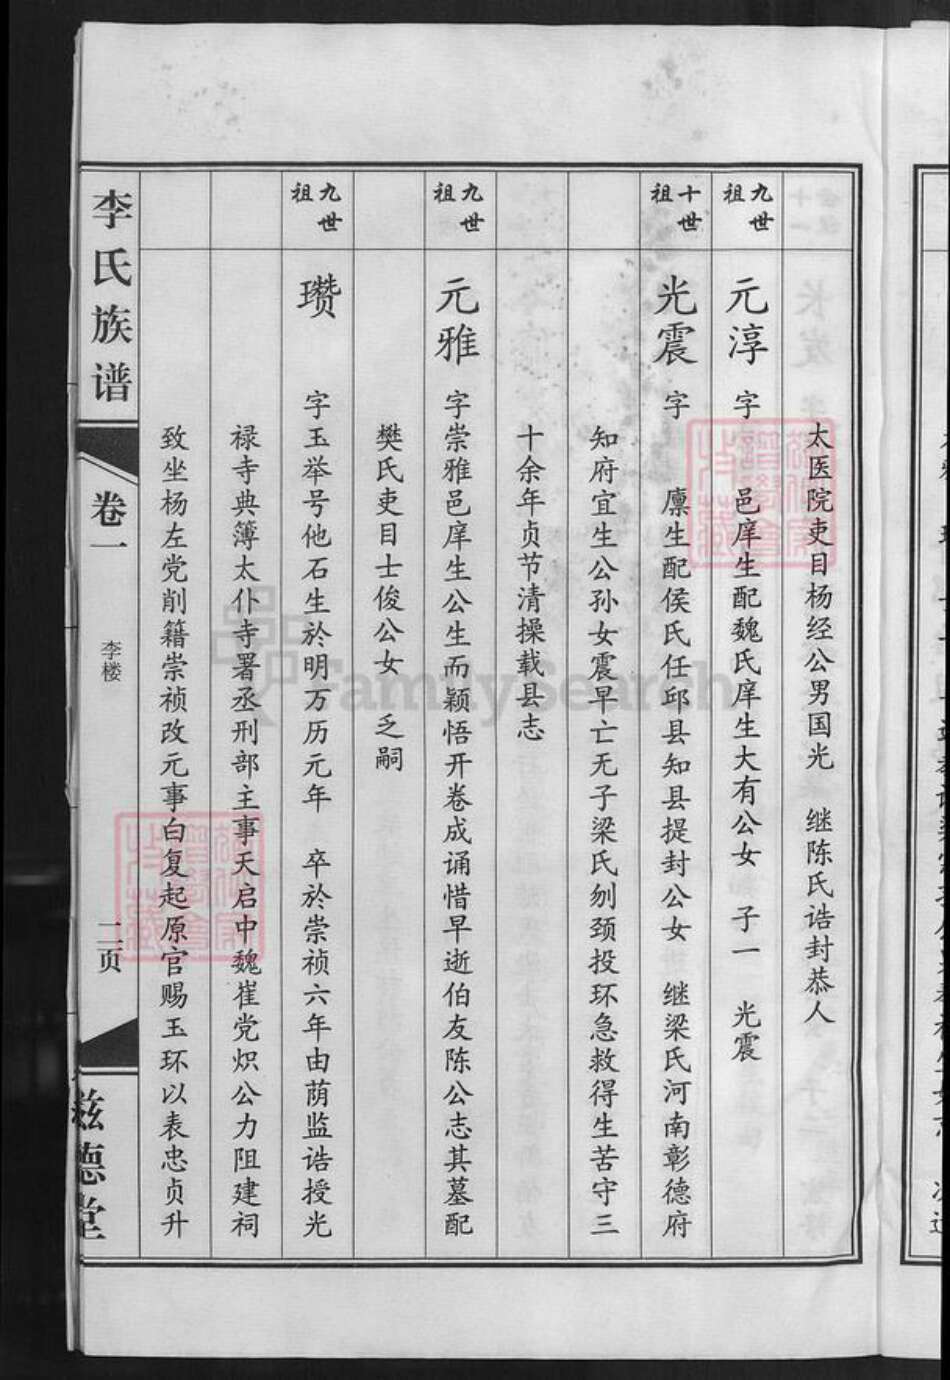 太医院吏目杨经公男国光　继陈氏诰封恭人
九世祖　元淳　字　邑庠生配魏氏庠生大有公女　子一　光震
十世祖　光震　字　廪生配侯氏任邱县知县提封公女　继梁氏河南彰德府
知府宜生公孙女震早亡无子梁氏刎颈投环急救得生苦守三
十余年贞节清操载县志
九世祖　元雅　字崇雅邑庠生公生而颖悟开卷成诵惜早逝伯友陈公志其墓配
樊氏吏目士俊公女　乏嗣
九世祖　瓒　字玉举号他石生於明万历元年　卒於崇祯六年由荫监诰授光
禄寺典簿太仆寺署丞刑部主事天启中魏崔党炽公力阻建祠
致坐杨左党削籍崇祯改元事白复起原官赐玉环以表忠贞升
李氏族谱
卷一
李楼
页
兹德堂
FamilySearch